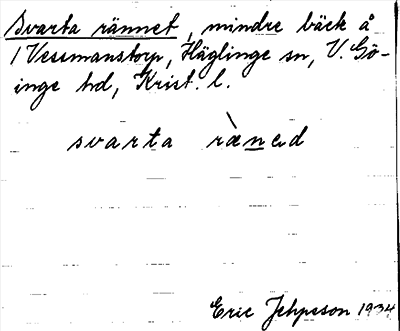 Svarta rännet, mindre bäck å
1 Vessmanstorp, Häglinge sn, V. Gö-
inge hd, Krist. l.
svarta ræ̀ned
Eric Jeppsson 1934